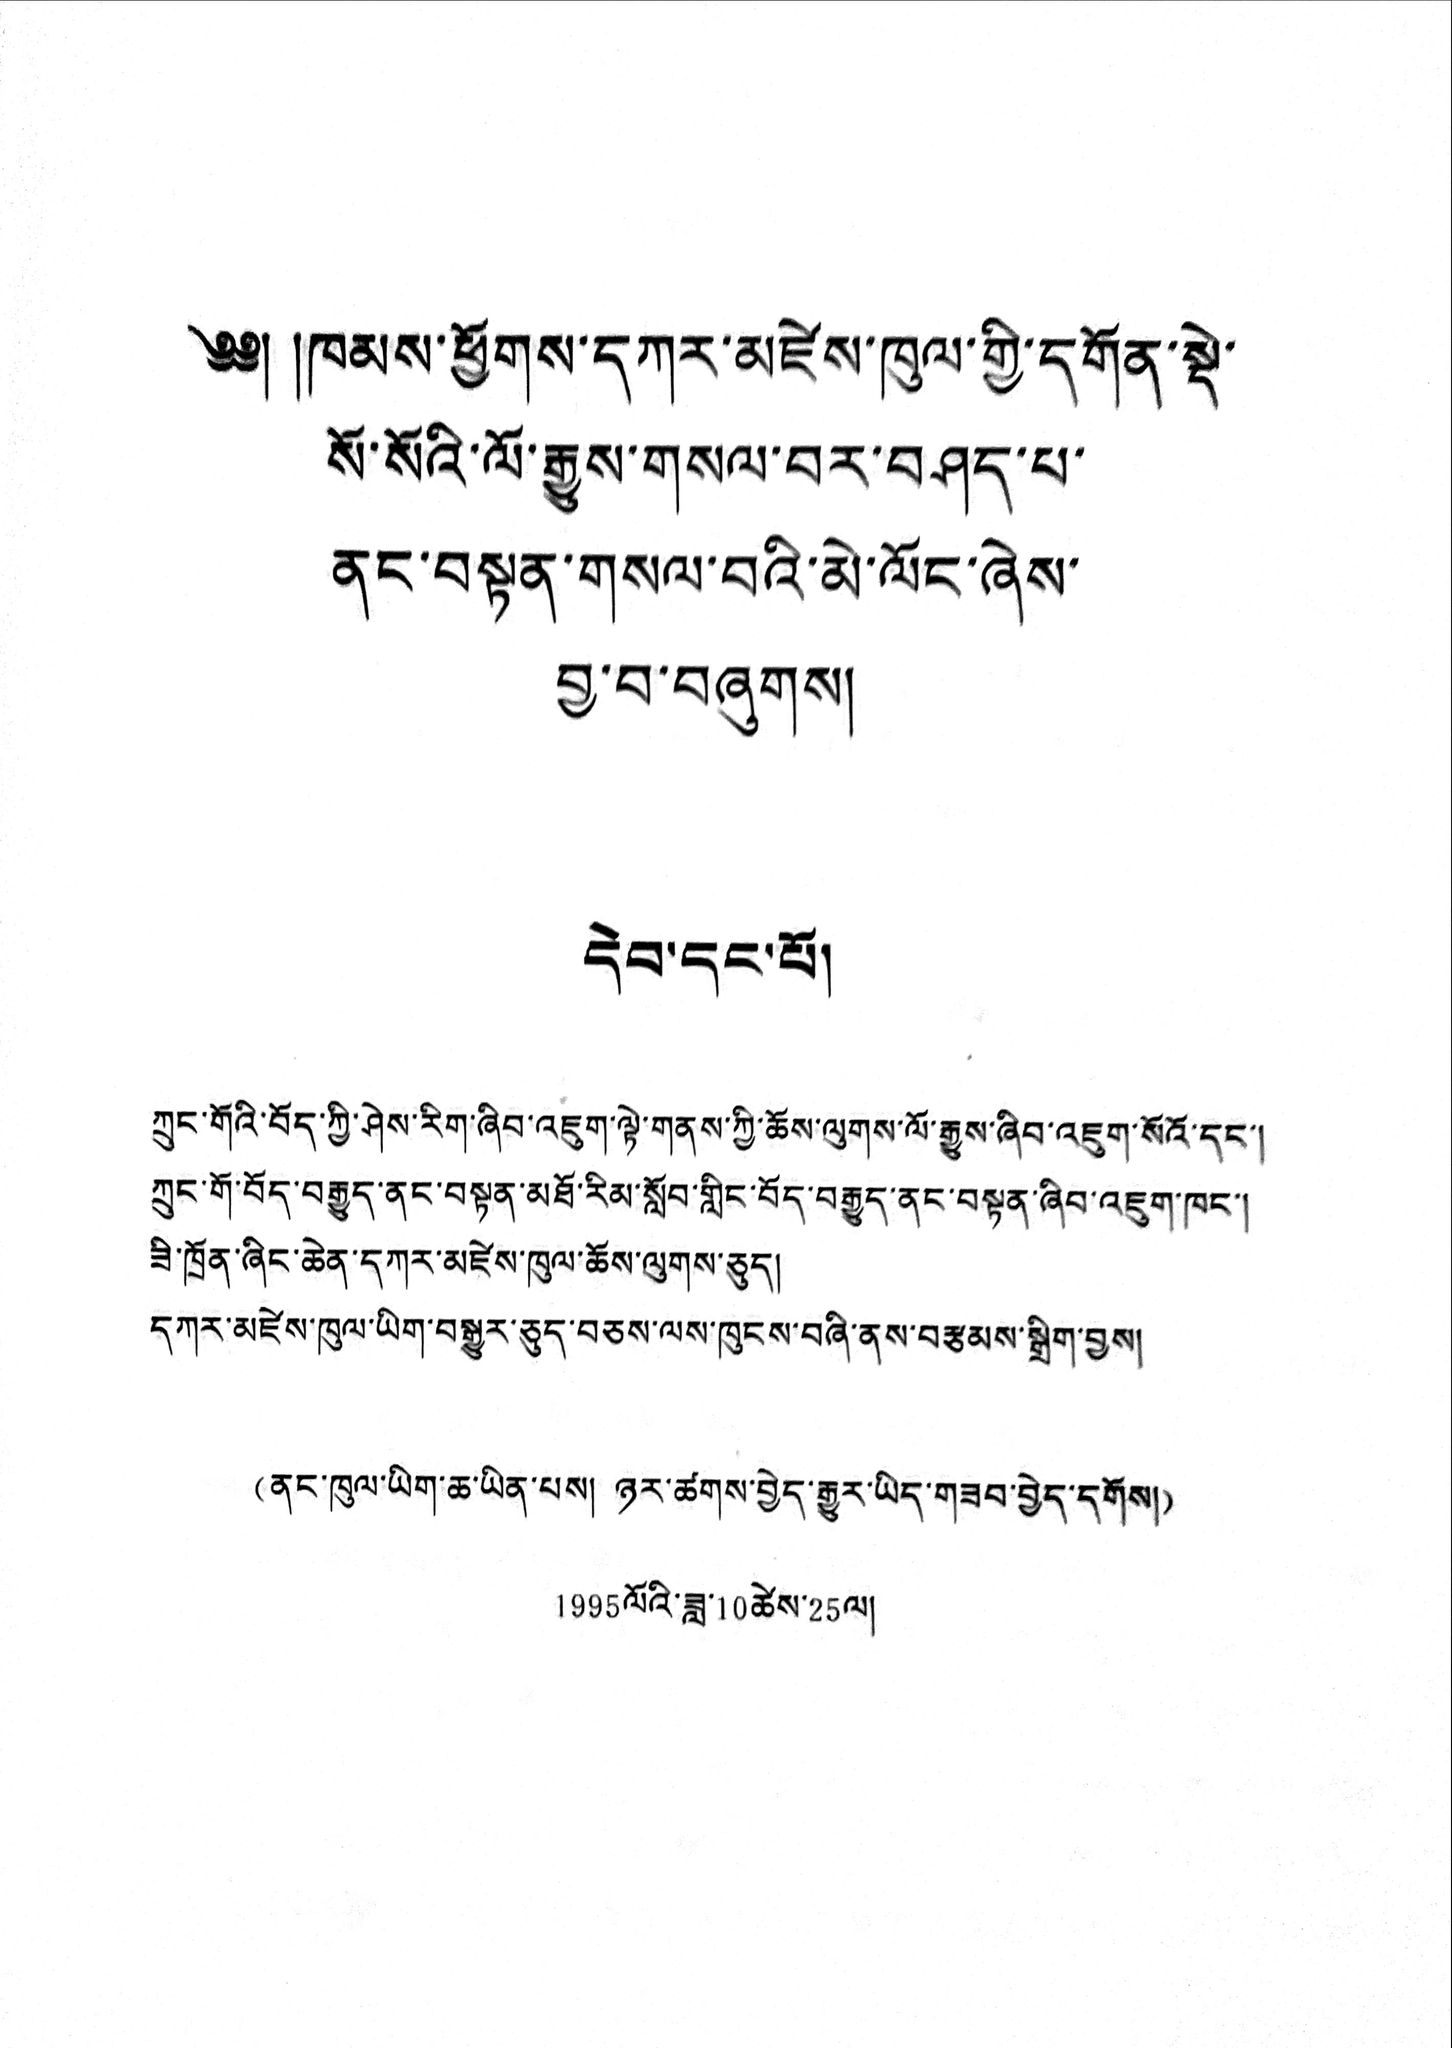 ༄༅། །ཁམས་ཕྱོགས་དཀར་མཛེས་ཁུལ་གྱི་དགོན་སྡེ་
སོ་སོའི་ལོ་རྒྱུས་གསལ་བར་བཤད་པ་
ནང་བསྟན་གསལ་བའི་མེ་ལོང་ཞེས་
བྱ་བ་བཞུགས།
དེབ་དང་པོ།
ཀྲུང་གོའི་བོད་ཀྱི་ཤེས་རིག་ཞིབ་འཇུག་ལྟེ་གནས་ཀྱི་ཆོས་ལུགས་ལོ་རྒྱུས་ཞིབ་འཇུག་སོའོ་དང་།
ཀྲུང་གོ་བོད་བརྒྱུད་ནང་བསྟན་མཐོ་རིམ་སློབ་གླིང་བོད་བརྒྱུད་ནང་བསྟན་ཞིབ་འཇུག་ཁང་།
ཟི་ཁྲོན་ཞིང་ཆེན་དཀར་མཛེས་ཁུལ་ཆོས་ལུགས་ཅུད།
དཀར་མཛེས་ཁུལ་ཡིག་བསྒྱུར་ཅུད་བཅས་ལས་ཁུངས་བཞི་ནས་བརྩམས་སྒྲིག་བྱས།
(ནང་ཁུལ་ཡིག་ཆ་ཡིན་པས། ཉར་ཚགས་བྱེད་རྒྱུར་ཡིད་གཟབ་བྱེད་དགོས།)
1995ལོའི་ཟླ་10ཚེས་25ལ།